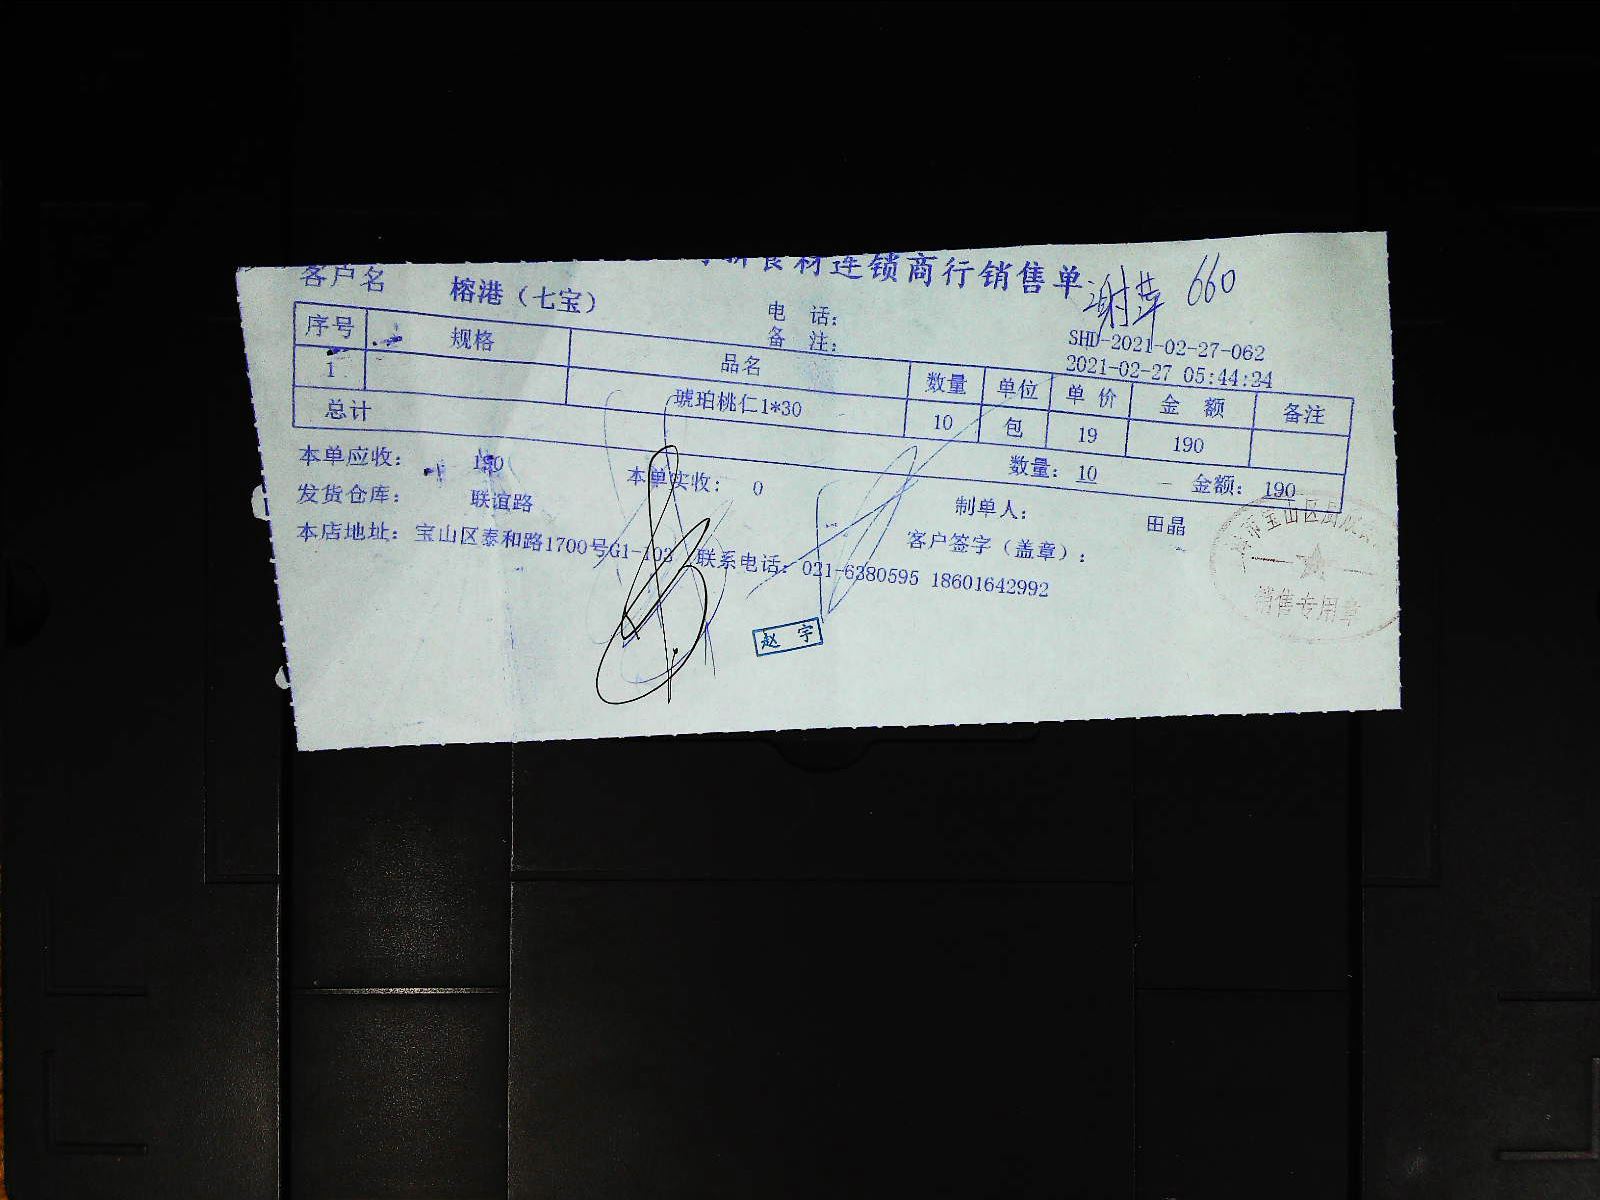 食材连锁商行销售单 谢萍 660
客户名 榕港（七宝） 电 话： SHD-2021-02-27-062
备 注： 2021-02-27 05:44:24
序号 规格 品名 数量 单位 单价 金 额 备注
1 琥珀桃仁1*30 10 包 19 190
总计 数量：10 金额：190
本单应收： 190 本单实收： 0 制单人： 田晶
发货仓库： 联谊路 客户签字（盖章）：
本店地址：宝山区泰和路1700号G1-103 联系电话：021-6380595 18601642992
赵 宇
市宝山区
销售专用章